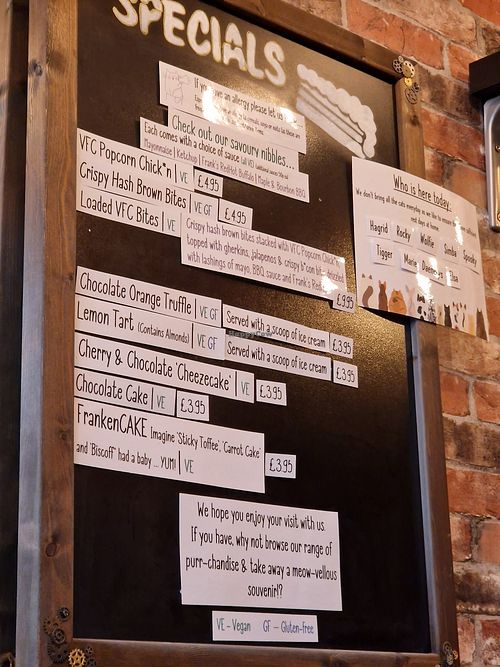 SPECIALS
If you have an allergy please let us
Check out our savoury nibbles...
Each comes with a choice of sauce (all VE)
Mayonnaise | Ketchup | Frank's RedHot Buffalo | Maple & Bourbon BBQ
VFC Popcorn Chick*n | VE £4.95
Crispy Hash Brown Bites | VE GF £4.95
Loaded VFC Bites | VE
Crispy hash brown bites stacked with VFC Popcorn Chick*n
topped with gherkins, jalapenos & crispy b*con bits drizzled
with lashings of mayo, BBQ sauce and Frank's Red
£9.95
Chocolate Orange Truffle | VE GF Served with a scoop of ice cream £3.95
Lemon Tart (Contains Almonds) | VE GF Served with a scoop of ice cream £3.95
Cherry & Chocolate 'Cheezecake' | VE £3.95
Chocolate Cake | VE £3.95
FrankenCAKE Imagine 'Sticky Toffee', 'Carrot Cake'
and 'Biscoff' had a baby ... YUM! | VE £3.95
We hope you enjoy your visit with us.
If you have, why not browse our range of
purr-chandise & take away a meow-vellous
souvenir!?
VE - Vegan GF - Gluten-free
Who is here today:
We don't bring all the cats everyday as we like to ensure
rest days at home.
Hagrid Rocky Wolfie Simba Spooky
Tigger Marie